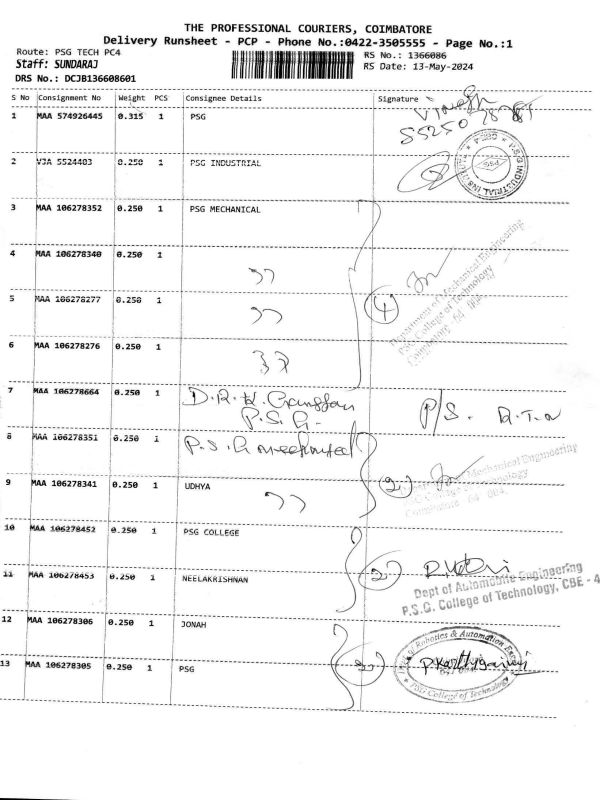 THE PROFESSIONAL COURIERS, COIMBATORE
Delivery Runsheet - PCP - Phone No.:0422-3505555 - Page No.:1
Route: PSG TECH PC4
RS No.: 1366086
Staff: SUNDARAJ
RS Date: 13-May-2024
DRS No.: DCJB136608601
S No Consignment No Weight PCS Consignee Details Signature
1 MAA 574926445 0.315 1 PSG
2 VJA 5524403 0.250 1 PSG INDUSTRIAL
3 MAA 106278352 0.250 1 PSG MECHANICAL
4 MAA 106278340 0.250 1 ,,
5 MAA 106278277 0.250 1 ,, 4
Department of Mechanical Engineering
PSG College of Technology
Coimbatore 64 004
6 MAA 106278276 0.250 1
7 MAA 106278664 0.250 1 D.R.K.
P.S.G.
8 MAA 106278351 0.250 1 P.S.G
9 MAA 106278341 0.250 1 UDHYA ,, 2
Mechanical Engineering
10 MAA 106278452 0.250 1 PSG COLLEGE
11 MAA 106278453 0.250 1 NEELAKRISHNAN 2
Dept of Automobile Engineering
P.S.G. College of Technology, CBE - 4
12 MAA 106278306 0.250 1 JONAH
13 MAA 106278305 0.250 1 PSG
Robotics & Automation
PSG College of Technology